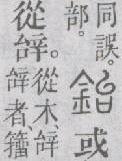 同誤。
部。
鉛或
從辝。
從木、辝
辝者籒